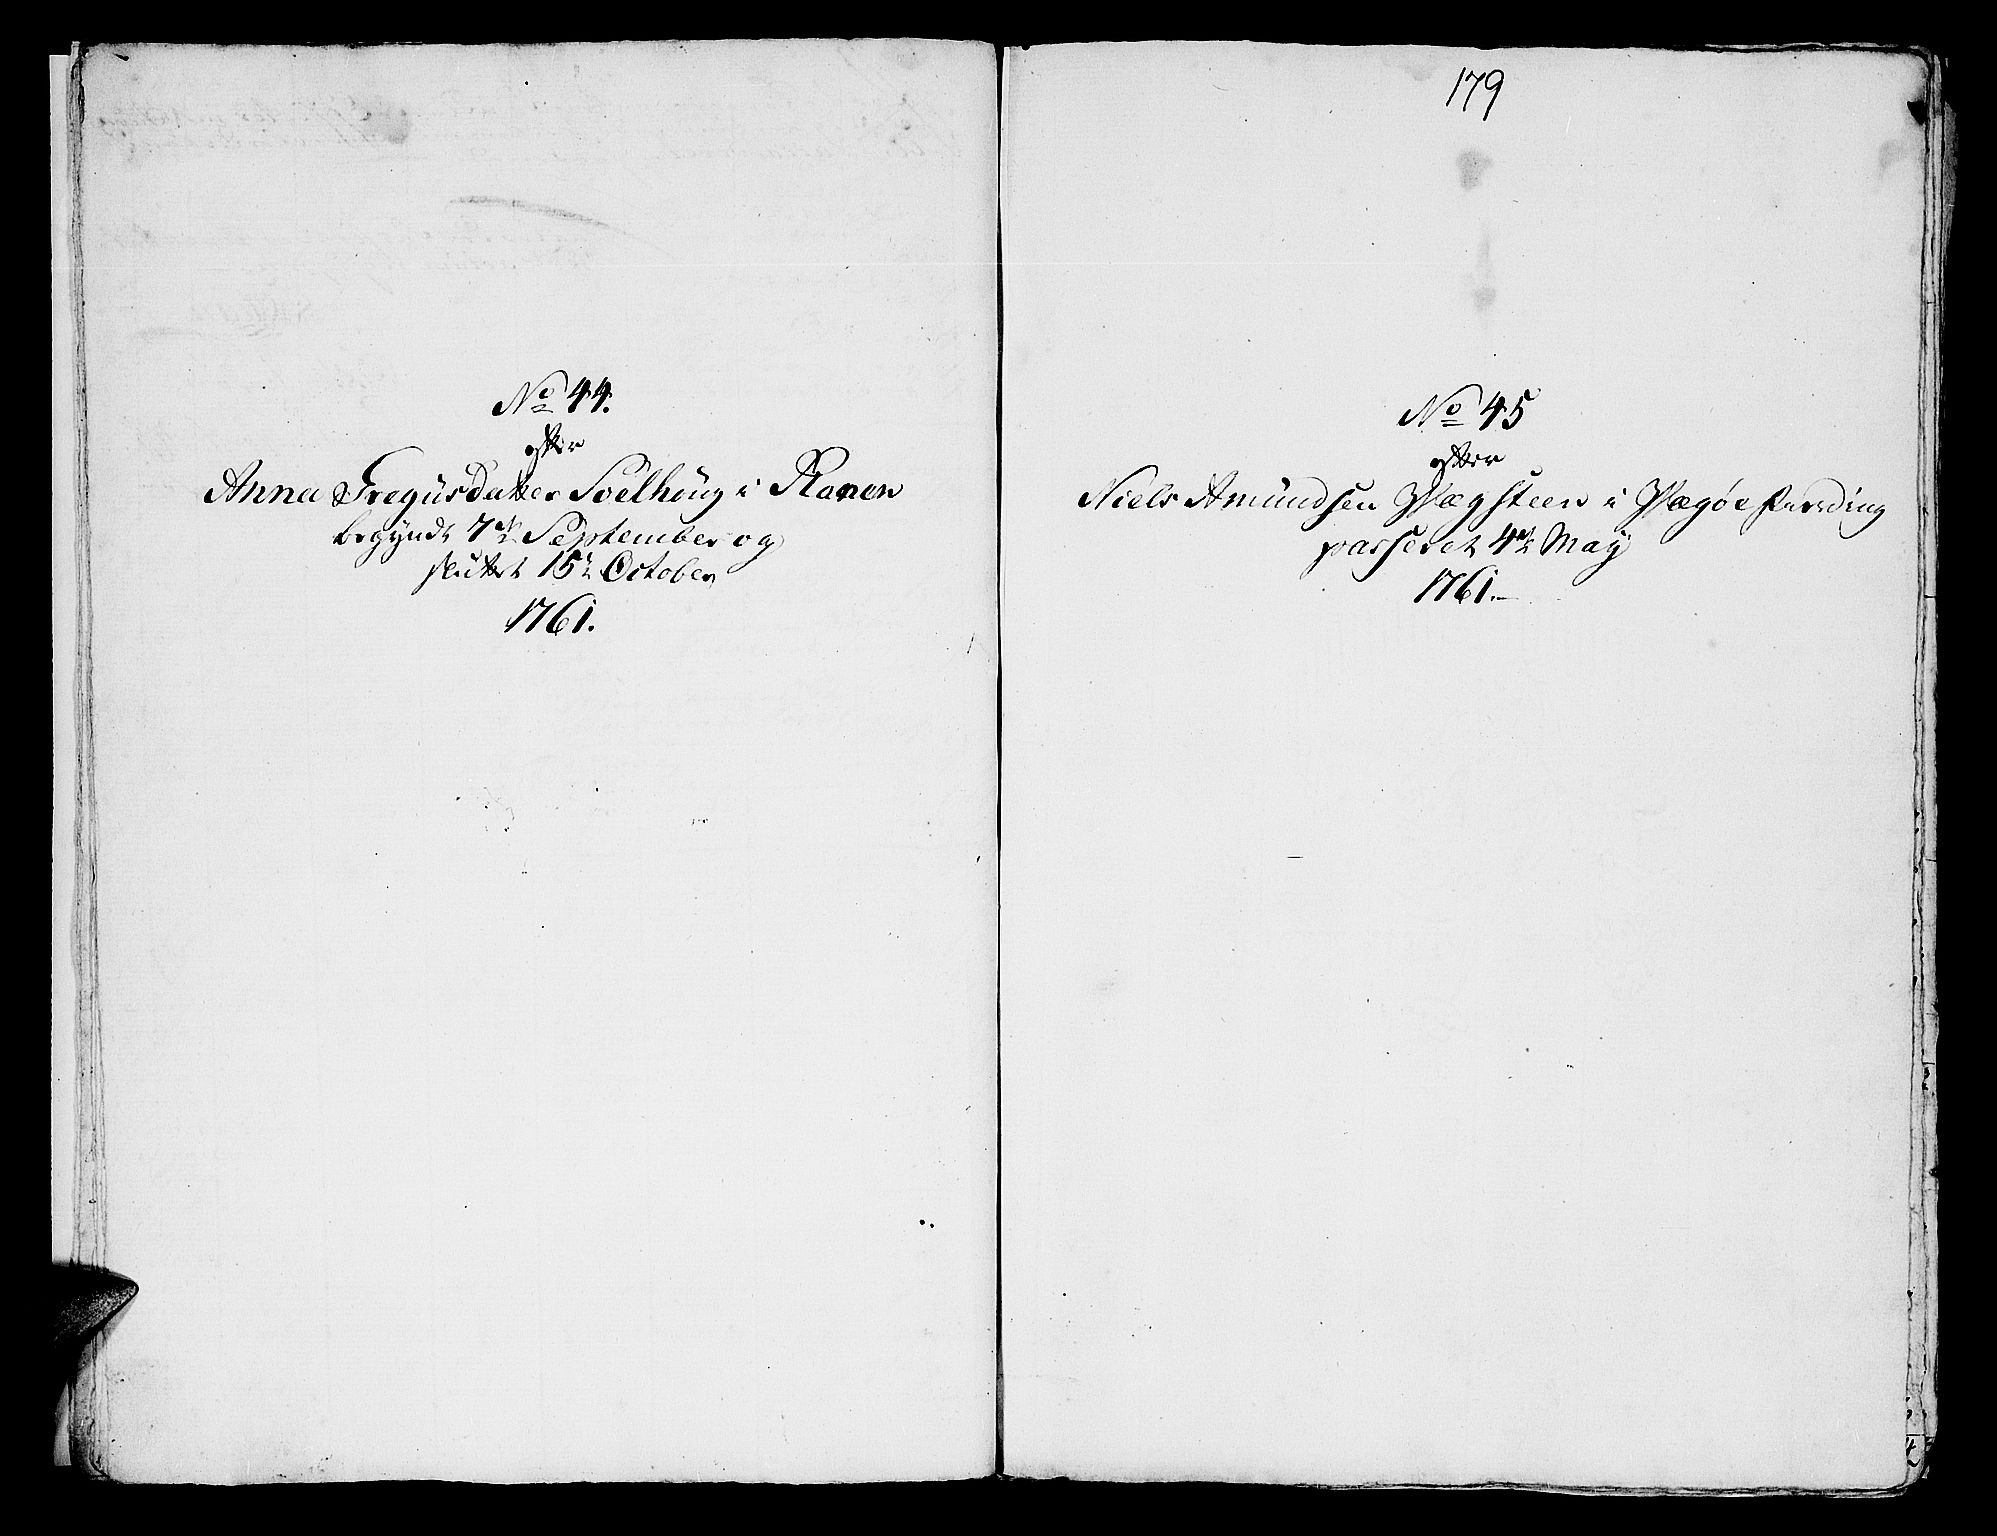 No 44.
efter
Anna Gregusdatter Soelhoug i Ranen
begyndt 7de September og
sluttet 15de October
1761.
179
No 45
efter
Niels Amundsen Wægsteen i Wægøe fierding
passeret 4de May
1761.